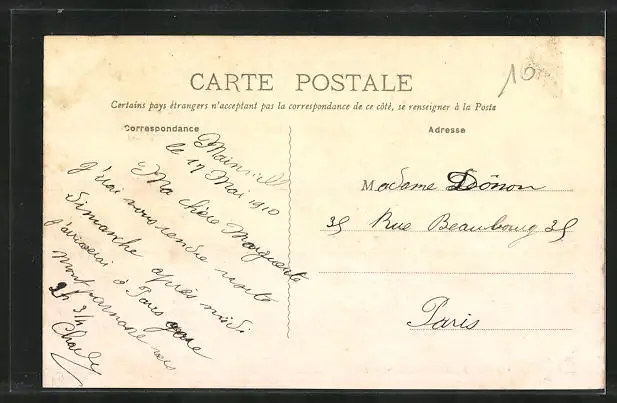 10
CARTE POSTALE
Certains pays étrangers n'acceptant pas la correspondance de ce côté, se renseigner à la Poste
Correspondance
Adresse
le 17 Mai 1910
Ma chère Marguerite
j'irai vous rendre visite
Dimanche après midi
j'arriverai à Paris gare
Montparnasse vers
2h 3/4
Madame Dônon
35 Rue Beaubourg 35
Paris